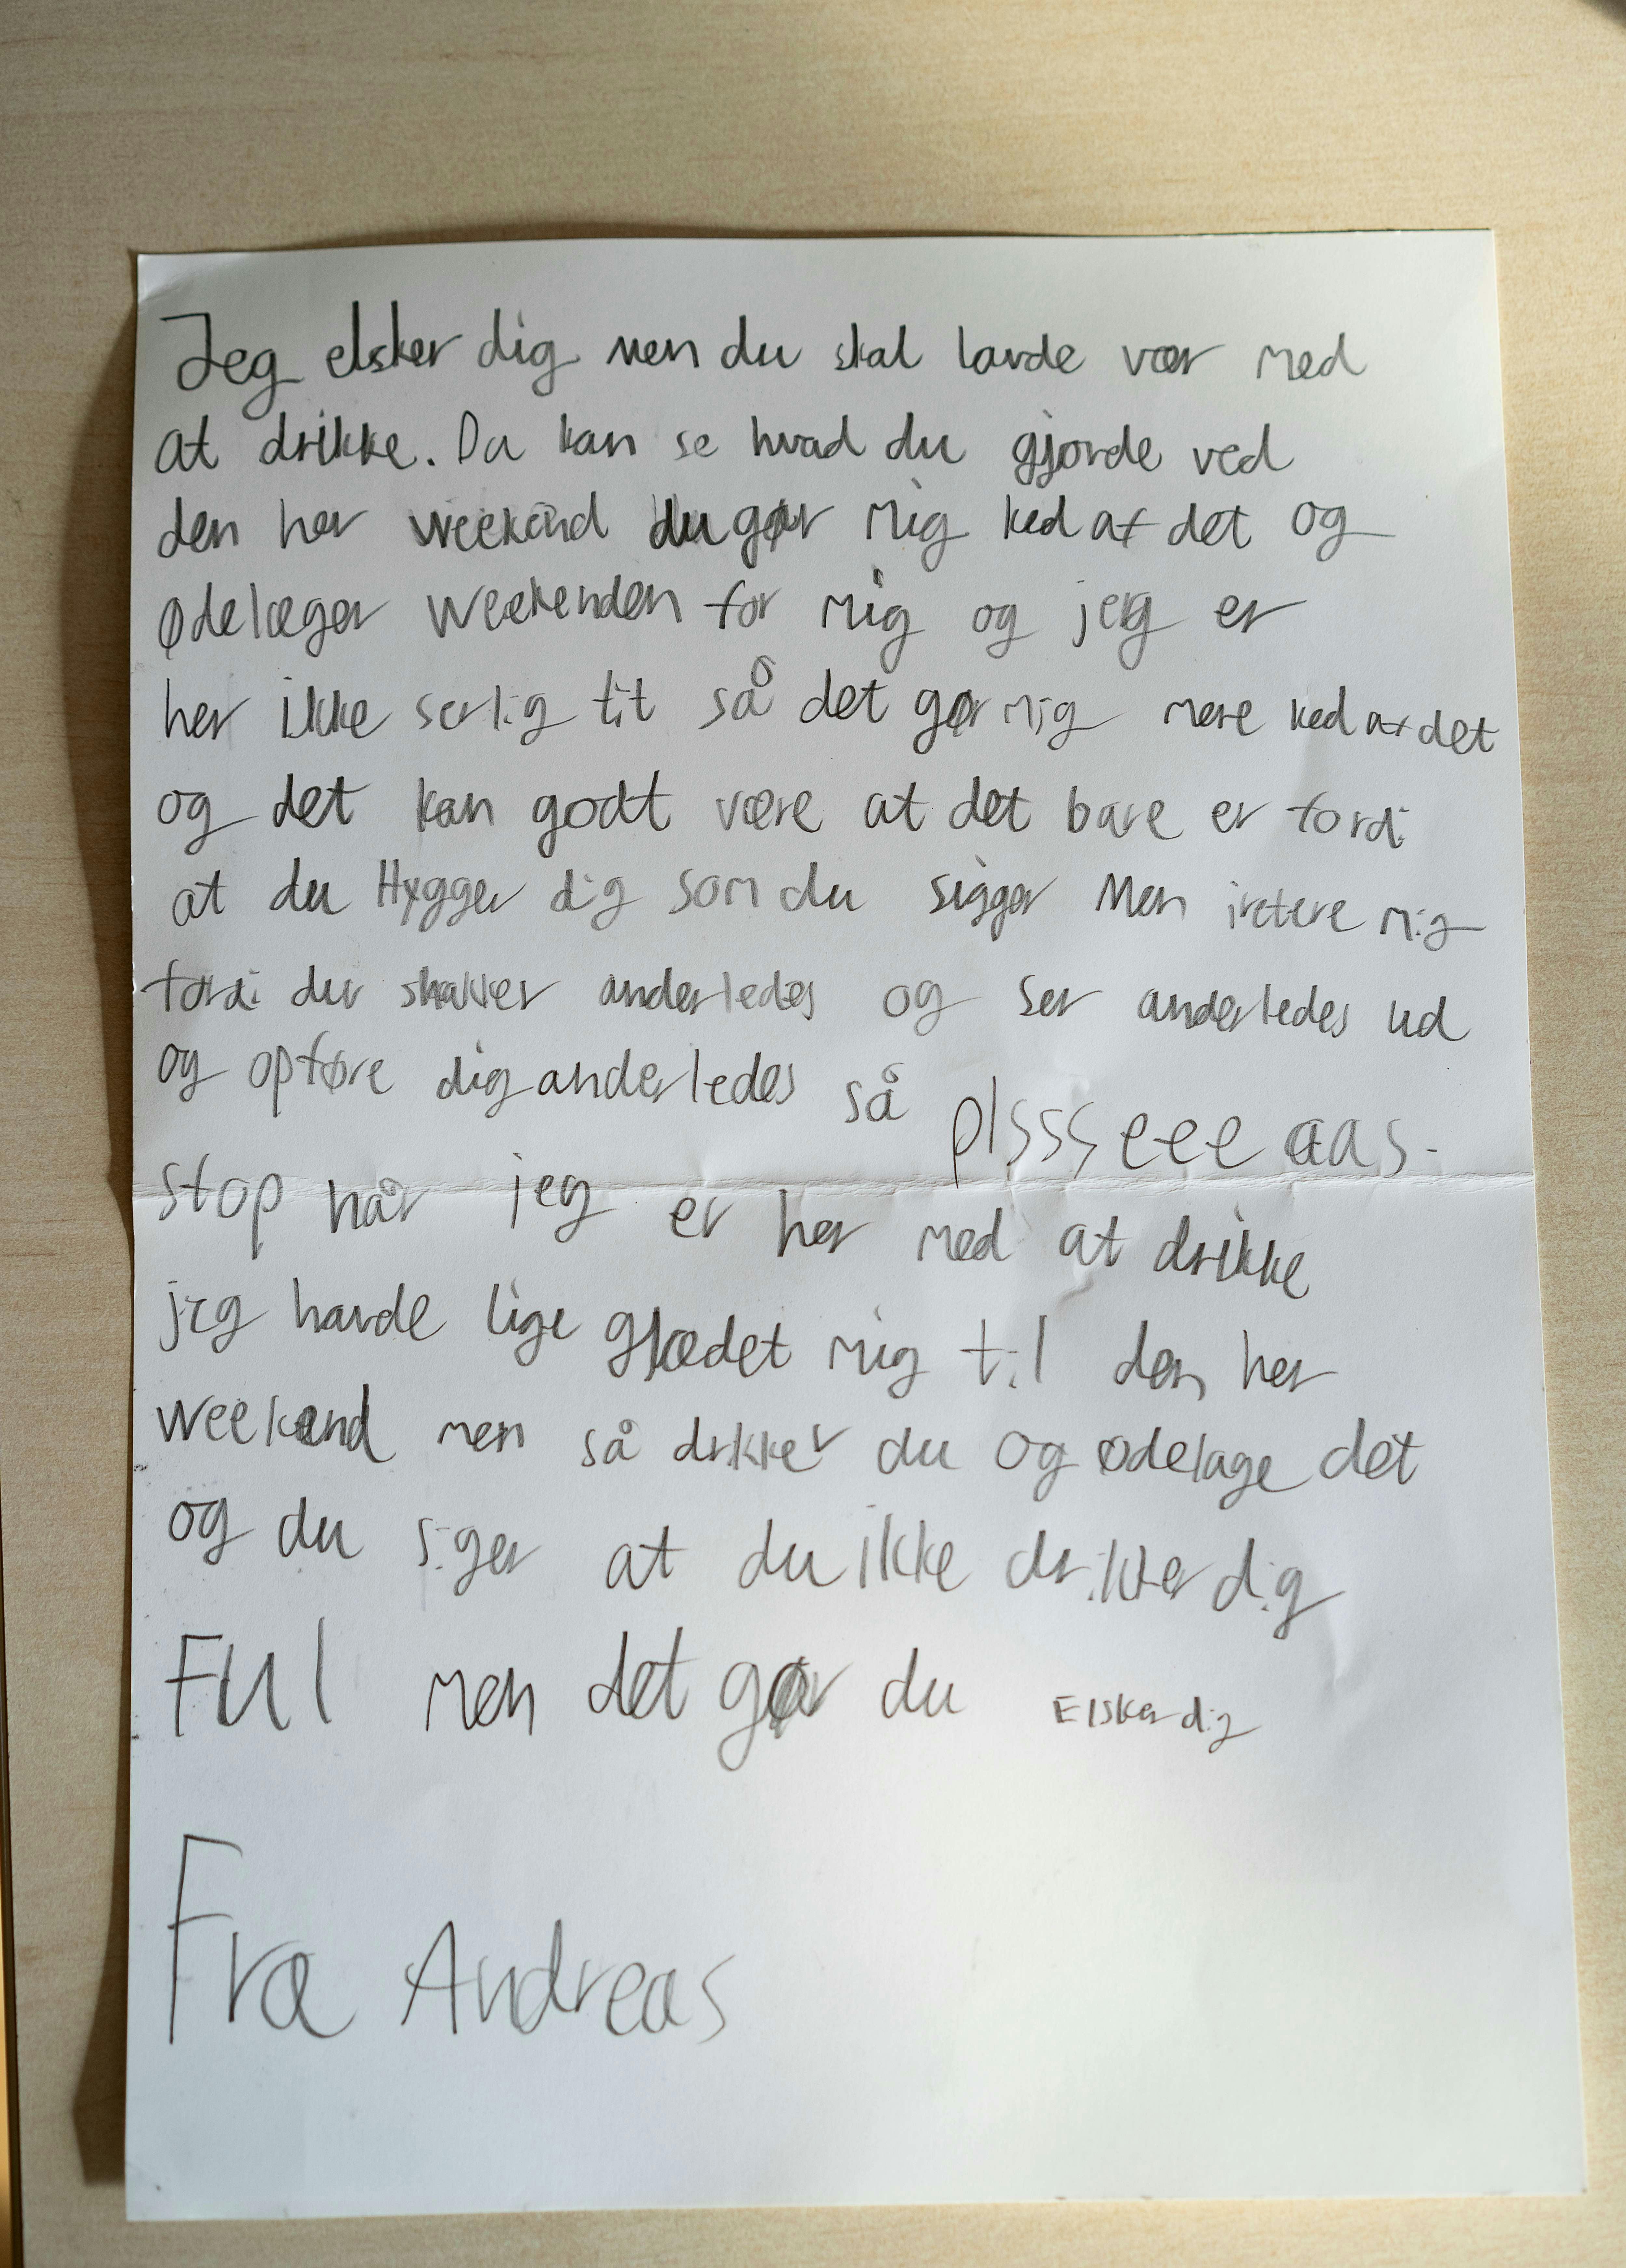 Jeg elsker dig men du skal lavde vær med
at drikke. Du kan se hvad du gjorde ved
den her weekend du gør mig ked af det og
ødelæger weekenden for mig og jeg er
her ikke serlig tit så det gør mig mere ked af det
og det kan godt være at det bare er fordi
at du Hygger dig som du sigger Men iretere mig
fordi du snakker anderledes og ser anderledes ud
og opføre dig anderledes så plssseeeaas.
stop når jeg er her med at drikke
jeg havde lige glædet mig til den her
weekend men så drikker du og ødelage det
og du siger at du ikke drikker dig
FUl men det gør du Elsker dig
Fra Andreas